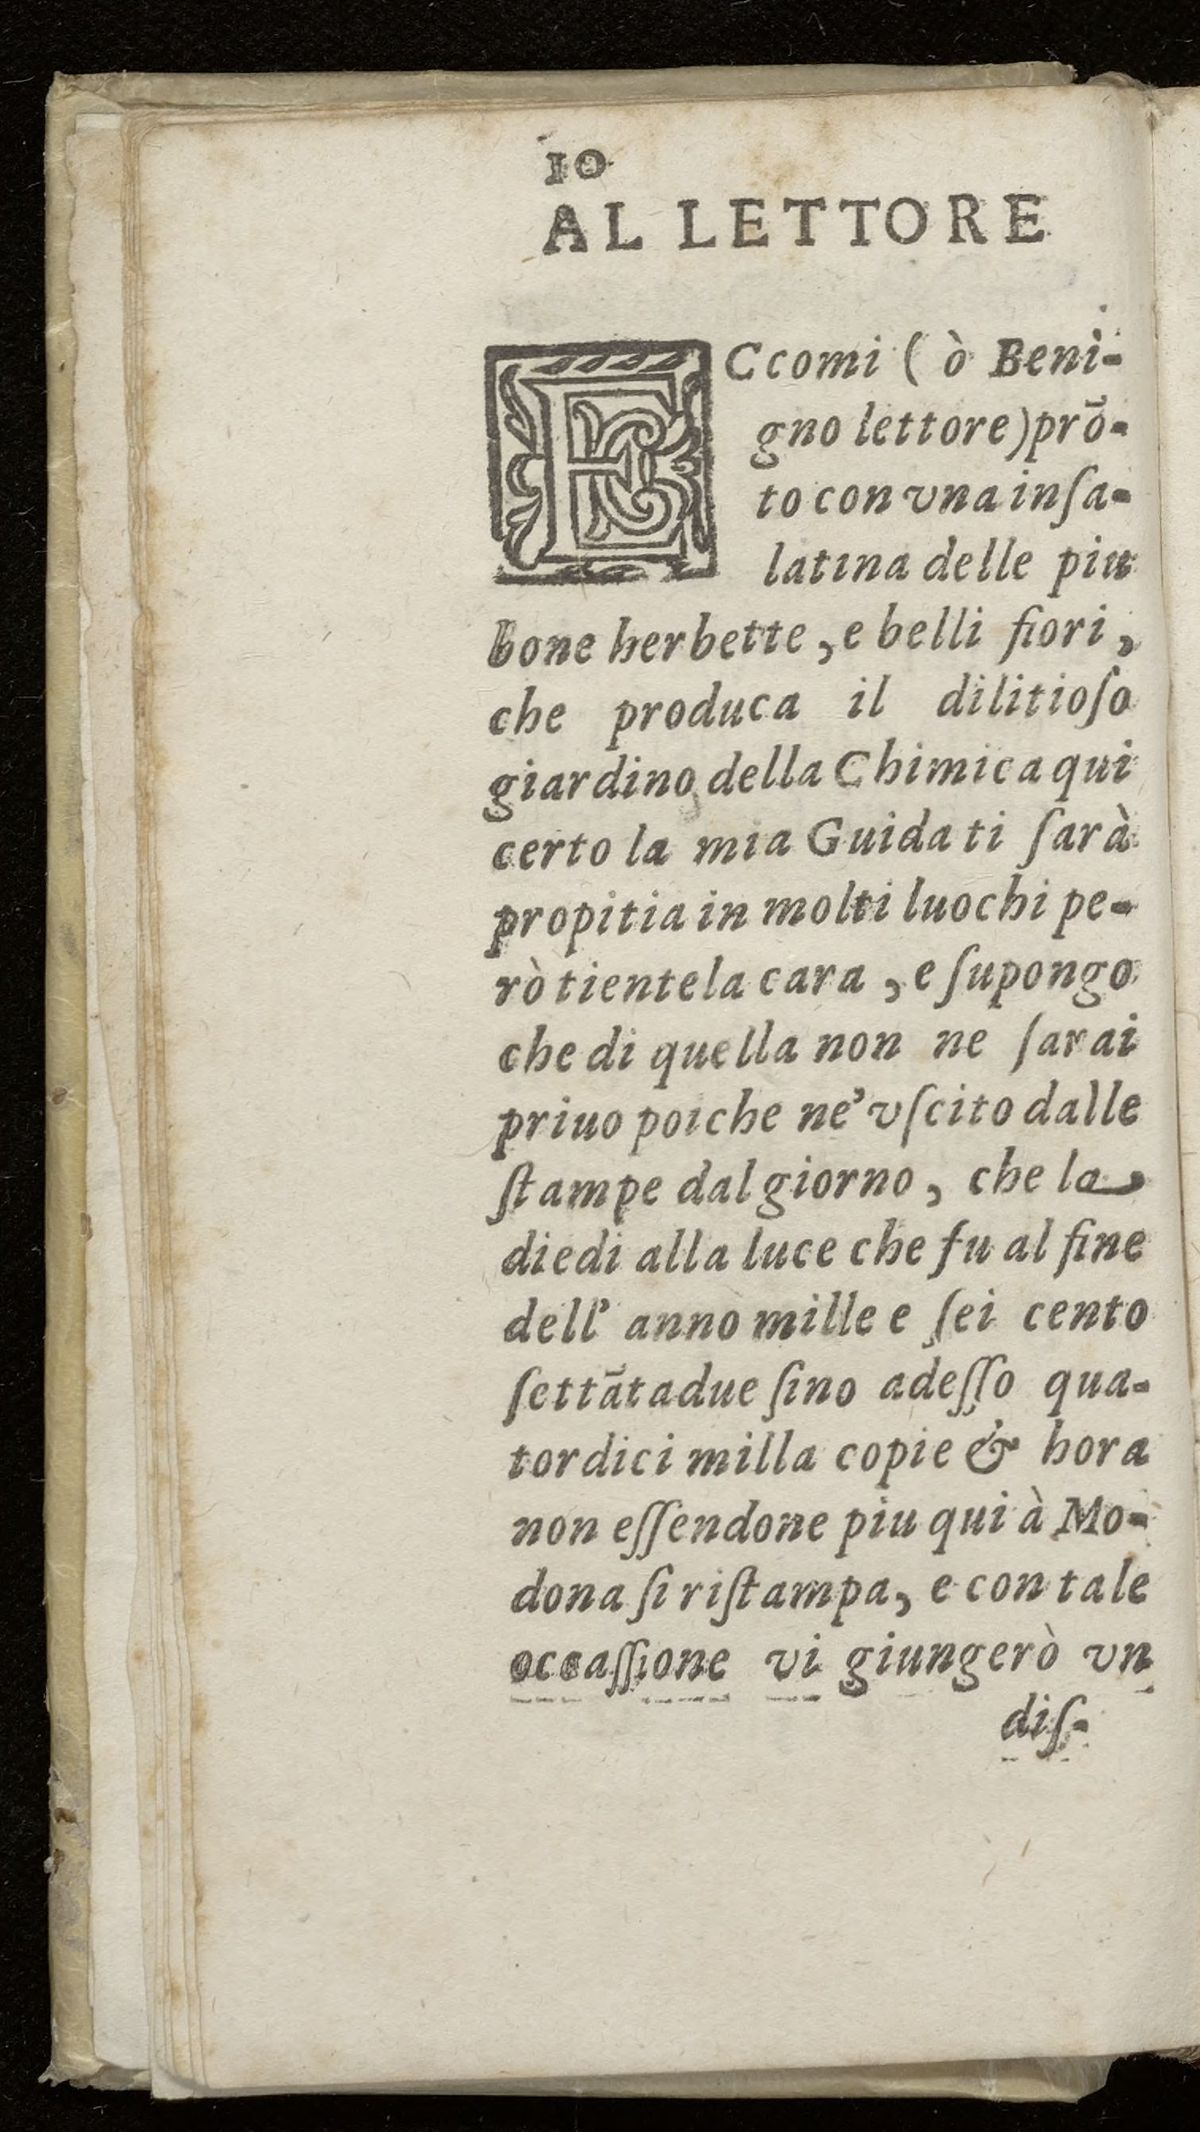 10
AL LETTORE
ECcomi ( ò Beni-
gno lettore)prō-
to con vna inſa-
latina delle piu
bone herbette, e belli fiori,
che produca il dilitioſo
giardino della Chimica qui
certo la mia Guida ti ſarà
propitia in molti luochi pe-
rò tientela cara, e ſupongo
che di quella non ne ſarai
priuo poiche ne' vſcito dalle
ſtampe dal giorno, che la
diedi alla luce che fu al fine
dell' anno mille e ſei cento
ſettātadue ſino adeſſo qua-
tordici milla copie & hora
non eſſendone piu qui à Mo-
dona ſi riſtampa, e con tale
occaſſione vi giungerò vn
diſ-